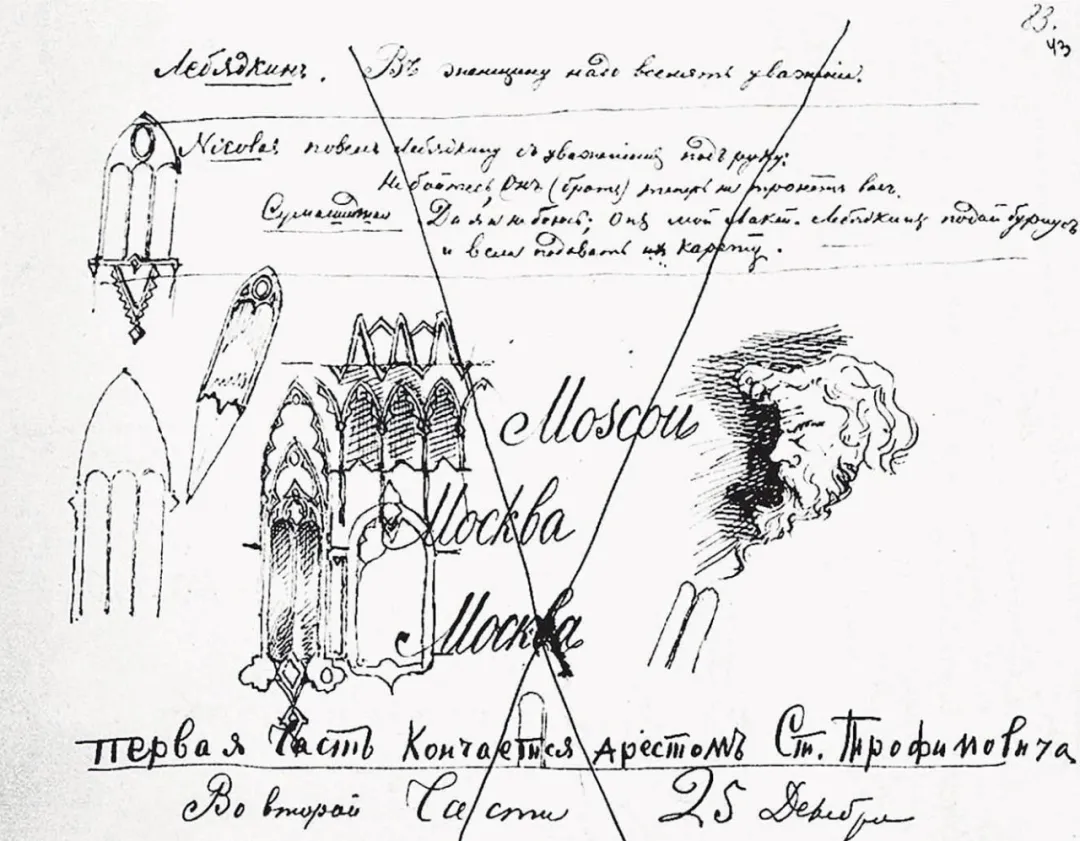 83.
43
Лебядкинъ. Въ женщину надо вселять уваженіе.
Nicolas повелъ Лебядкину съ уваженіемъ подъ руку:
Не бойтесь, Онъ (братъ) теперь не тронетъ васъ.
Сумасшедшая Да я и не боюсь; Онъ мой лакей. Лебядкинъ подай
и вели подавать карету.
Moscou
Москва
Москва
Первая Часть Кончается арестомъ Ст. Трофимовича
Во второй Части 25 Декабря